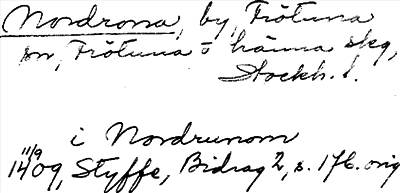 Nordrona, by, Frötuna
sn, Frötuna o hänna skg,
Stockh. l.
i Nordrunom
11/9 1409, Styffe, Bidrag 2, s. 176. orig